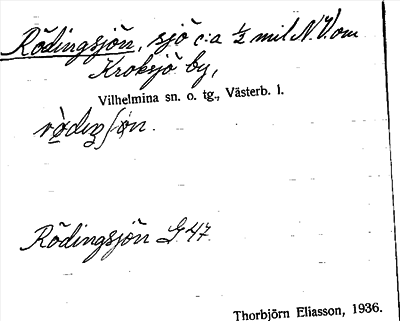 Rödingsjön, sjö c:a ½ mil N.V. om
Kroksjö by,
Vilhelmina sn. o. tg., Västerb. l.
Rödingsjön G 47
Thorbjörn Eliasson, 1936.